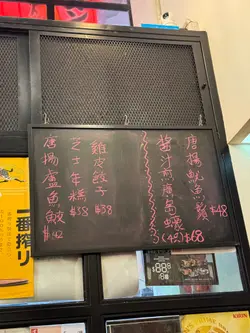 唐揚魷魚鬚 $48
醬汁煎廣島蠔 $68
雞皮餃子 $38
芝士年糕 $38
唐揚盧魚鮫 $42
一番搾り
KIRIN